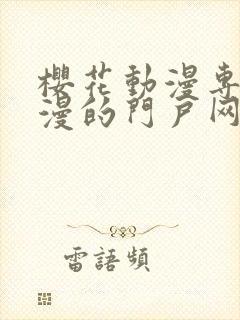 櫻花動漫專
漫的門戶网
雷語頻